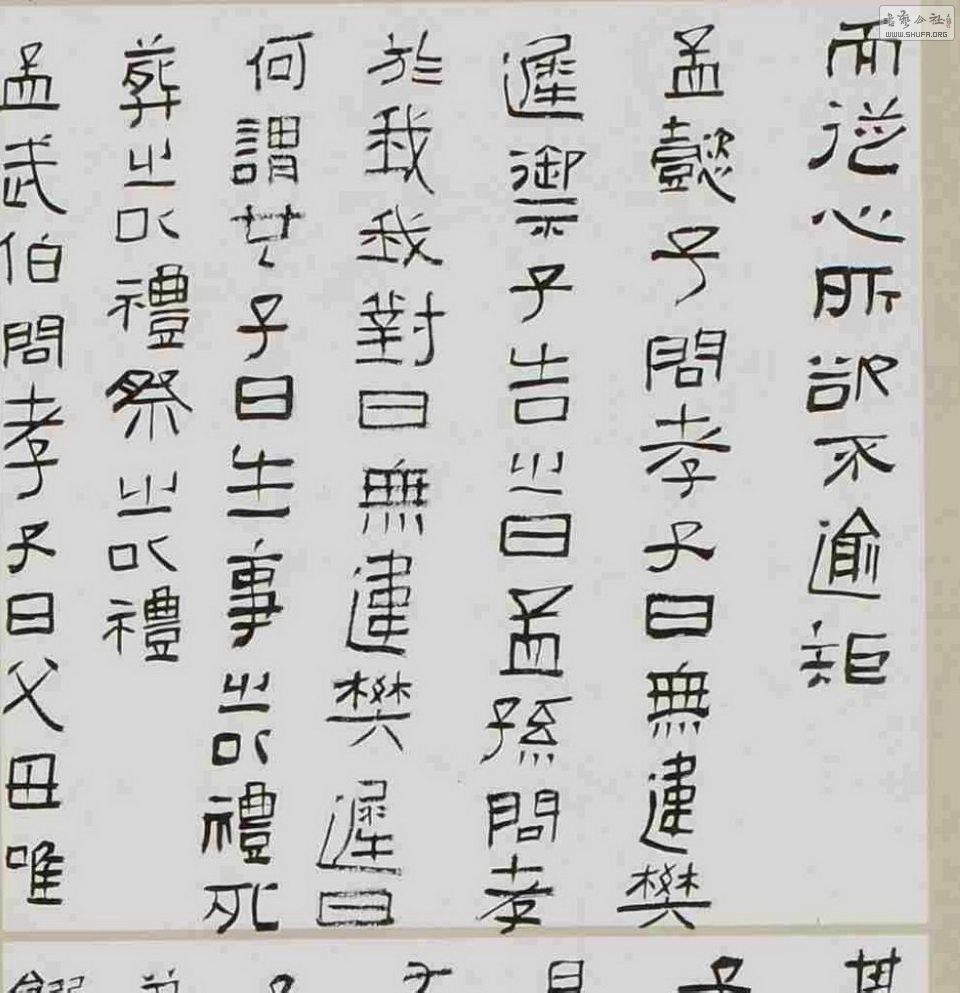 而從心所欲不逾矩
孟懿子問孝子曰無違樊
遲御子告之曰孟孫問孝
於我我對曰無違樊遲曰
何謂也子曰生事之以禮死
葬之以禮祭之以禮
孟武伯問孝子曰父母唯
書藝公社
WWW.SHUFA.ORG